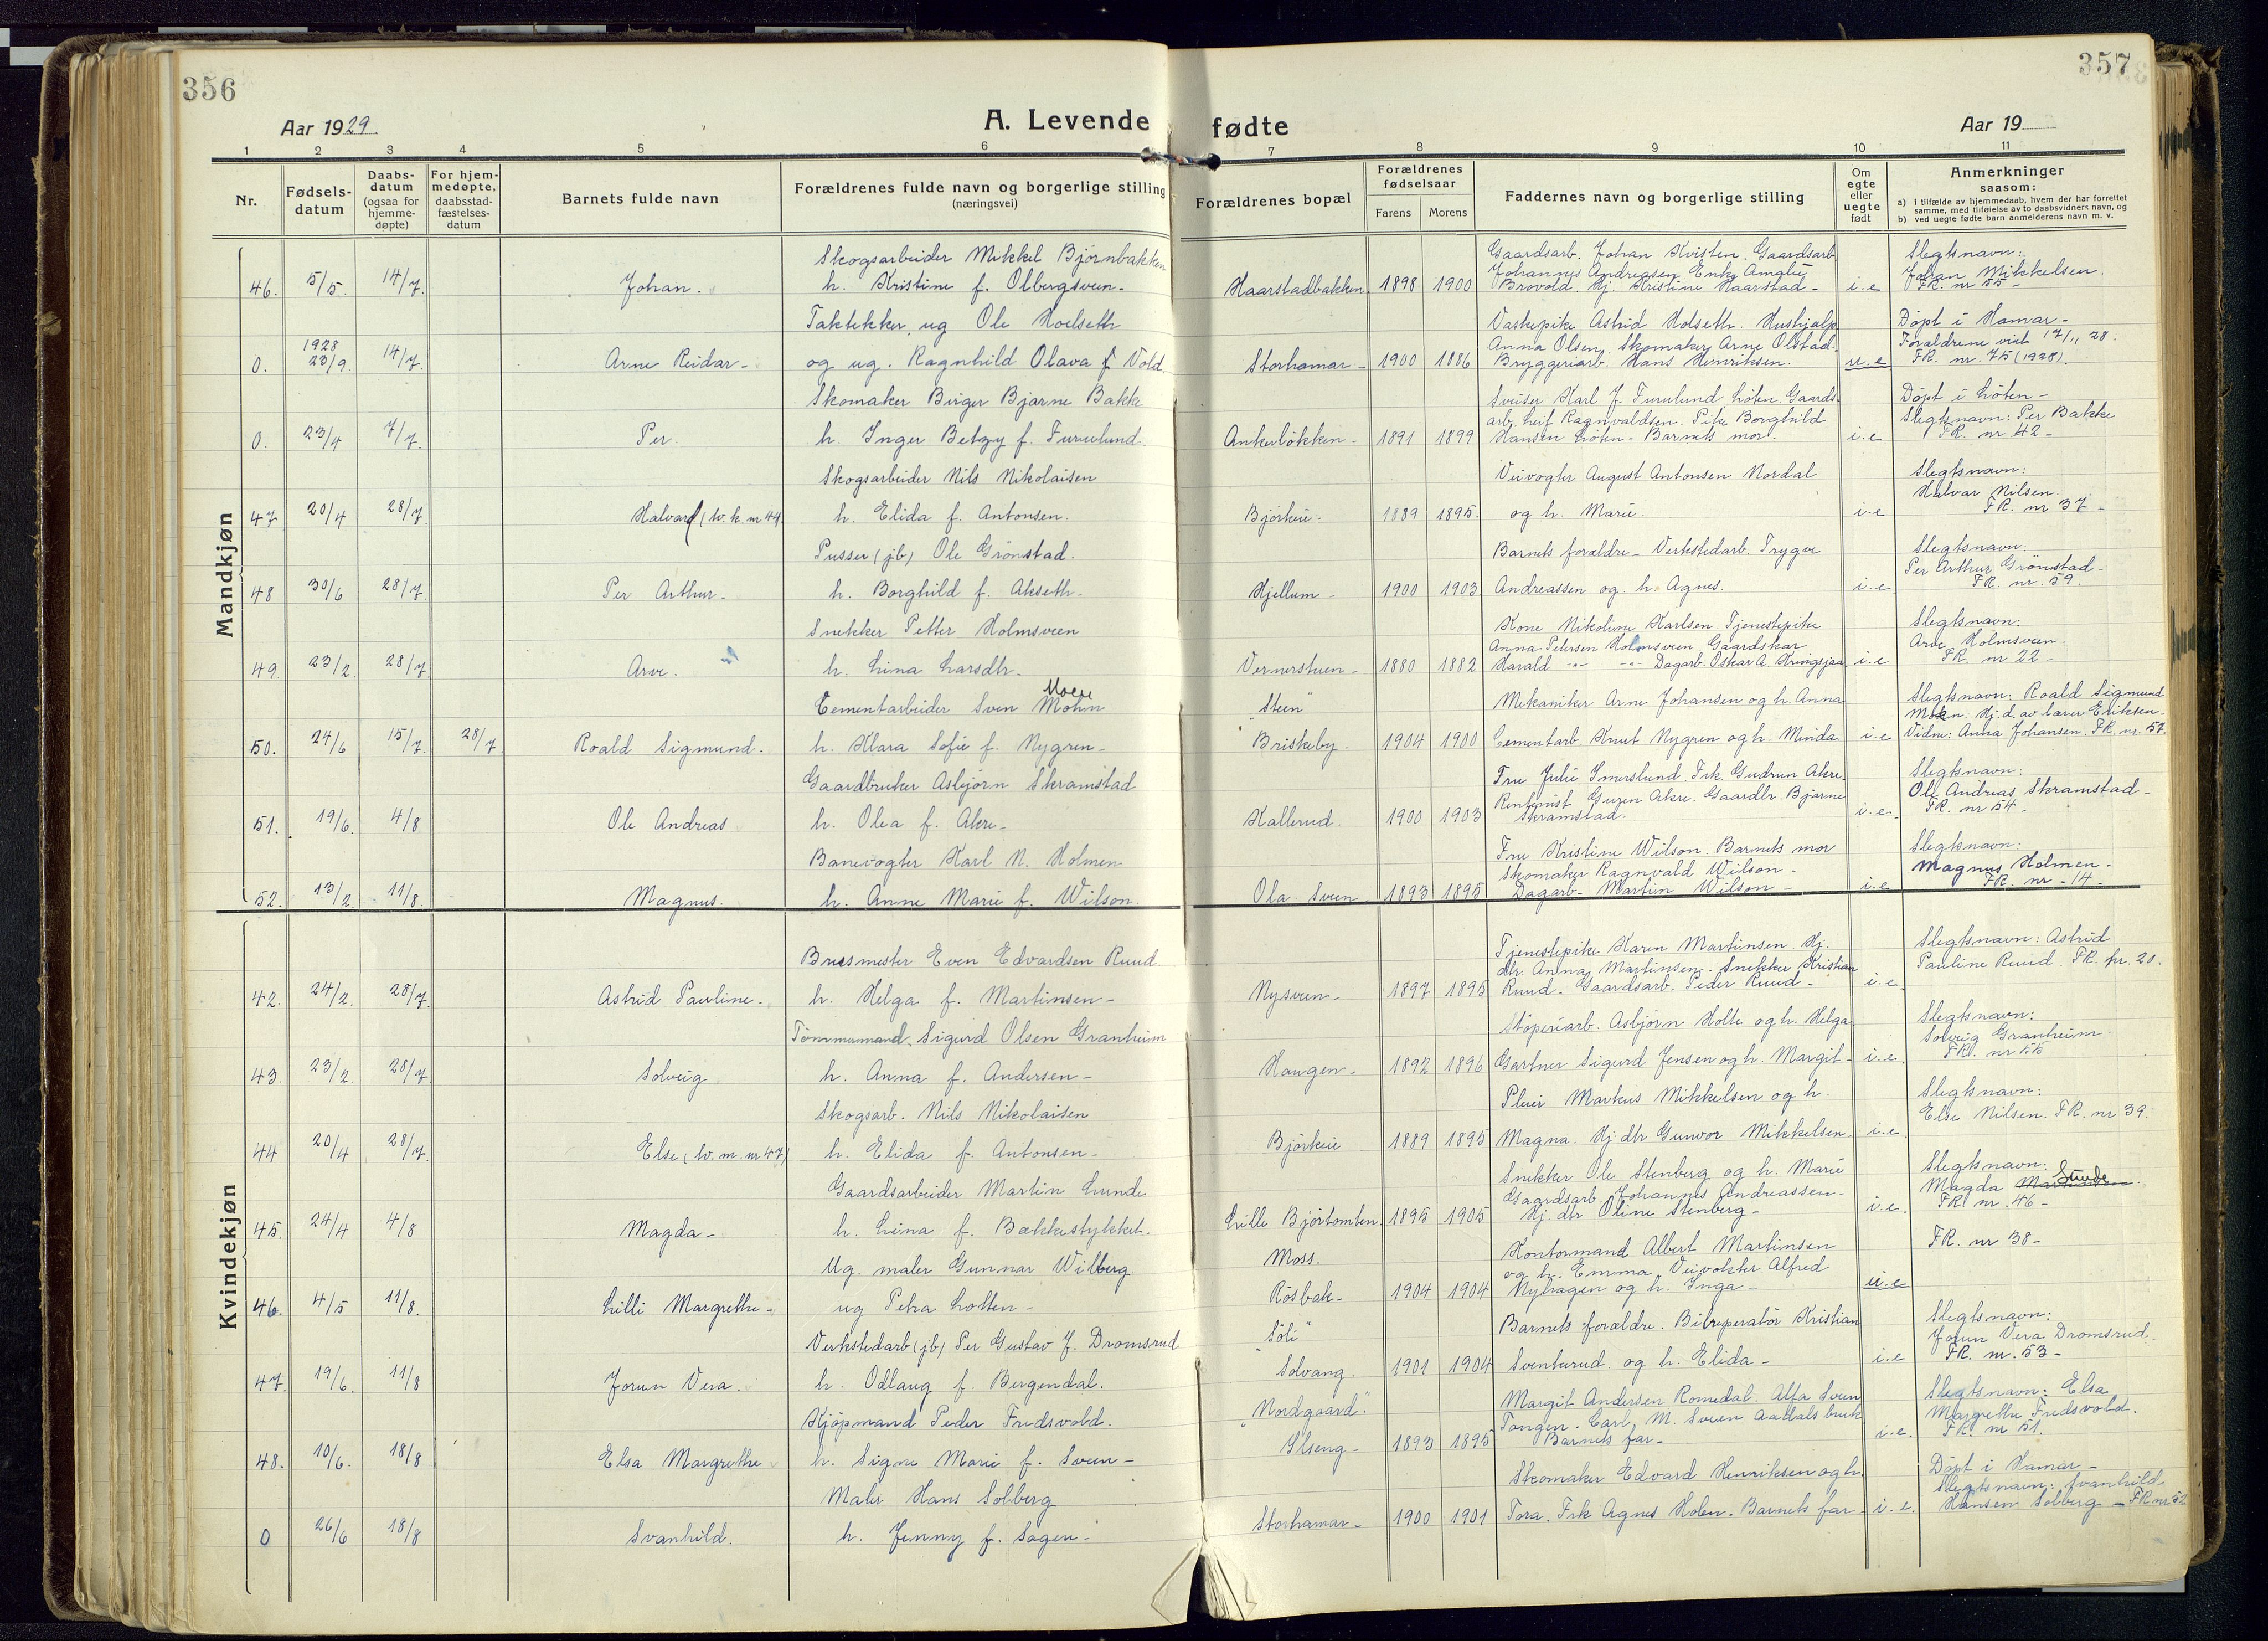 356
357
Aar 1929.
A. Levende fødte
Aar 19
1 2 3 4 5 6 7 8 9 10 11
Nr.
Fødsels-datum
Daabs-datum (ogsaa for hjemme-døpte)
For hjem-medøpte, daabsstad-fæstelses-datum
Barnets fulde navn
Forældrenes fulde navn og borgerlige stilling (næringsvei)
Forældrenes bopæl
Forældrenes fødselsaar
Farens
Morens
Faddernes navn og borgerlige stilling
Om egte eller uegte født
Anmerkninger saasom:
a) i tilfælde av hjemmedaab, hvem der har forrettet samme, med tilføielse av to daabsvidners navn, og
b) ved uegte fødte barn anmelderens navn m. v.
Mandkjøn
Skogsarbeider Mikkel Bjørnbakken
46. 5/5. 14/7. Johan. h. Kristine f. Olbergsveen-
Haarstadbakken 1898 1900
Gaardsarb. Johan Kvisten. Gaardsarb
Johannes Andreasen Enke
Brovold. Hj. Kristine Haarstad- i.e
Slegtsnavn:
Johan Mikkelsen.
FR. nr 55-
Taktekker, ug Ole Hoelseth
0. 1928 23/9. 14/7. Arne Reidar- og ug. Ragnhild Olava f Vold.
Storhamar- 1900 1886
Vaskepike Astrid Holseth. Hushjalp
Anna Olsen, Skomaker Arne Olstad.
Bryggeriarb. Hans Henriksen. u.e
Døpt i Hamar-
Forældrene viet 17/11 28.
FR. nr. 75 (1928).
Skomaker Birger Bjarne Bakke
0. 23/4 7/7. Per. h. Inger Betzy f. Furulund.
Ankerløkken- 1891 1899
Sveiser Karl J. Furulund Løten. Gaards-
arb. Leif Ragnvaldsen. Pike Borghild
Hansen Løten- Barnets mor. i.e
Døpt i Løten-
Slegtsnavn: Per Bakke
FR. nr 42-
Skogsarbeider Nils Nikolaisen
47 20/4 28/7. Halvar (tv. k. nr 44. h. Elida f. Antonsen.
Bjørkeie- 1889 1895.
Veivogter August Antonsen Nordal
og h. Marie. i.e
Slegtsnavn:
Halvar Nilsen.
FR. nr 37-
Pusser (jb) Ole Grønstad.
48 30/6 28/7. Per Arthur- h. Borghild f. Akseth-
Hjellum- 1900 1903
Barnets forældre- Verkstedarb. Trygve
Andreassen og. h. Agnes. i.e
Slegtsnavn:
Per Arthur Grønstad-
FR. nr. 59.
Snekker Petter Holmsveen
49. 23/2. 28/7. Arve. h. Lina Larsdtr-
Vernerstuen- 1880 1882
Kone Nikoline Karlsen Tjenestepike
Anna Petersen Holmsveen Gaardskar
Harald -"- -"- Dagarb. Oskar A. Kringsjaa i.e
Slegtsnavn:
Arve Holmsveen.
FR. nr 22-
Cementarbeider Sven Mohn Moen
50. 24/6 15/7. 28/7. Roald Sigmund. h. Klara Sofie f. Nygren-
"Steen"
Briskeby- 1904 1900
Mekaniker Arne Johansen og h. Anna
Cementarb. Knut Nygren og h. Minda i.e
Slegtsnavn: Roald Sigmund
Moen. Hj.d. av lærer Eriksen-
Vidne: Anna Johansen. FR. nr. 57.
Gaardbruker Asbjørn Skramstad
51. 19/6. 4/8 Ole Andreas h. Olea f. Akre-
Kallerud. 1900 1903
Fru Julie Imerslund. Frk. Gudrun Akre.
Rentenist Guren Akre. Gaardbr. Bjarne
Skramstad. i.e.
Slegtsnavn:
Ole Andreas Skramstad-
FR. nr 54-
Banevogter Karl N. Holmen
52. 13/2. 11/8. Magnus. h. Anne Marie f. Wilson.
Ola Sveen 1893 1895
Fru Kristine Wilson. Barnets mor
Skomaker Ragnvald Wilson-
Dagarb- Martin Wilson- i.e
Slegtsnavn:
Magnus Holmen-
FR. nr -14-
Kvindekjøn
Brusmester Even Edvardsen Ruud
42. 24/2. 28/7. Astrid Pauline. h. Helga f. Martinsen-
Nysveen- 1897 1895
Tjenestepike Karen Martinsen Hj.
dtr. Anna Martinsen- Snekker Kristian
Ruud. Gaardsarb. Peder Ruud- i.e.
Slegtsnavn: Astrid
Pauline Ruud. FR. nr. 20.
Tømmermand. Sigurd Olsen Granheim
43. 23/2. 28/7. Solveig h. Anna f. Andersen-
Haugen- 1892 1896
Støperiarb. Asbjørn Holte og h. Helga
Gartner Sigurd Jensen og h. Margit- i.e.
Slegtsnavn:
Solveig Granheim.
FR. nr
Skogsarb. Nils Nikolaisen
44 20/4 28/7. Else (tv. m. nr 47) h. Elida f. Antonsen-
Bjørkeie 1889 1895
Pleier Markus Mikkelsen og h.
Magna. Hj. dtr Gunvor Mikkelsen. i.e.
Slegtsnavn:
Else Nilsen. FR. nr 39.
Gaardsarbeider Martin Lunde
45. 24/4 4/8 Magda- h. Lina f. Bækkestykket.
Lille Bjørtomten. 1895 1905
Snekker Ole Stenberg og h. Marie
Gaardsarb. Johannes Andreassen-
Hj. dtr Oline Stenberg- i.e.
Slegtsnavn:
Magda Lunde.
FR. nr. 46-
Ug. maler Gunnar Wilberg
46. 4/5 11/8. Lilli Margrethe- ug Petra Lotten-
Moss.
Røsbak- 1904 1904
Kontormand Albert Martinsen
og h. Emma, Veivokter Alfred
Nyhagen og h. Inga- u.e
FR. nr 38-
Verkstedarb (jb) Per Gustav J. Dromsrud
47. 19/6. 11/8 Jorun Vera. h. Odlaug f. Bergendal.
"Søli"
Solvang. 1901 1904
Barnets forældre. Bilreperatør Kristian
Svenkerud og h. Elida- i.e
Slegtsnavn:
Jorun Vera Dromsrud.
FR. nr. 53-
Kjøpmand Peder Fredsvold.
48. 10/6. 18/8 Elsa Margrethe h. Signe Marie f. Sveen-
"Nordgaard".
Ilseng- 1893 1895
Margit Andersen Romedal. Alfa Sveen
Tangen. Carl M. Sveen Aadals bruk
Barnets far- i.e.
Slegtsnavn: Elsa
Margrethe Fredsvold.
FR. nr 51.
Maler Hans Solberg
0 26/6 18/8 Svanhild. h. Jenny f. Sagen-
Storhamar- 1900 1901
Skomaker Edvard Henriksen og h.
Tora. Frk Agnes Holen. Barnets far- i.e.
Døpt i Hamar-
Slegtsnavn: Svanhild
Hansen Solberg - FR nr 52